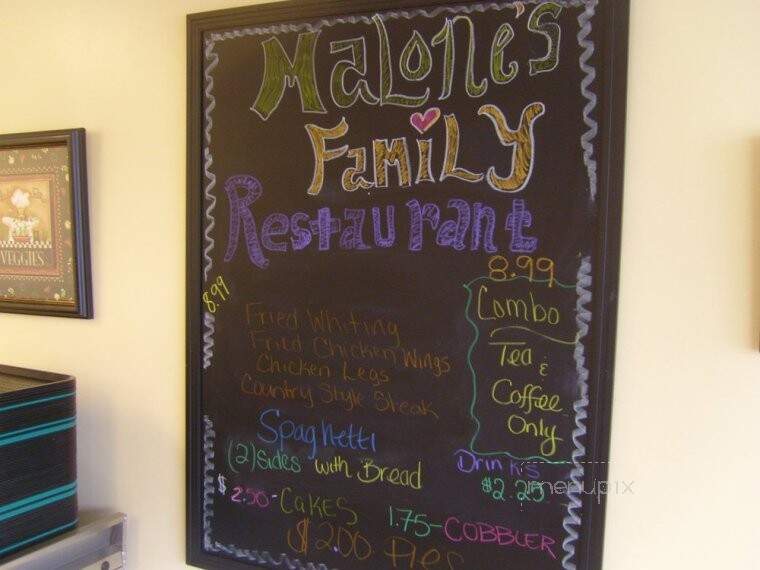 Malone's
Family
Restaurant
8.99
8.99
Combo
Tea &
Coffee
Only
Fried Whiting
Fried Chicken Wings
Chicken Legs
Country Style Steak
Spaghetti
(2) Sides with Bread
Drinks
$2.25
$2.50-CaKES
1.75-COBBLER
$2.00 Pies
VEGGIES
menupix